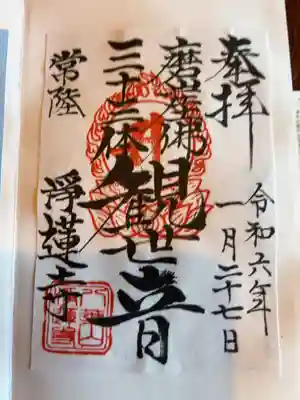 奉拝
令和六年
一月二十七日
磨崖佛
三十三体
観世音
常陸
浄蓮寺